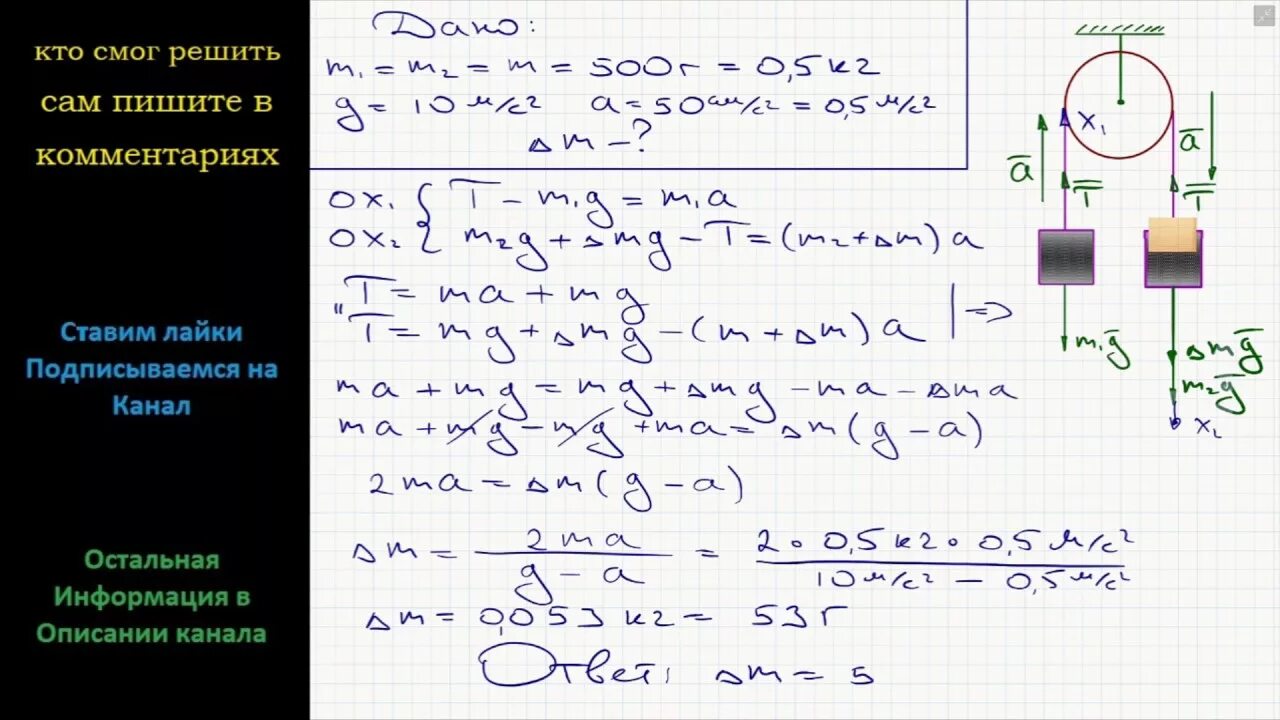 кто смог решить
сам пишите в
комментариях
Ставим лайки
Подписываемся на
Канал
Остальная
Информация в
Описании канала
Дано:
m₁ = m₂ = m = 500г = 0,5кг
g = 10 м/с² a = 50 см/с² = 0,5 м/с²
Δm - ?
OX₁ { T - m₁g = m₁a
OX₂ { m₂g + Δmg - T = (m₂ + Δm) a
T = ma + mg
" T = mg + Δmg - (m + Δm) a | =>
ma + mg = mg + Δmg - ma - Δma
ma + mg - mg + ma = Δm(g - a)
2ma = Δm(g - a)
Δm = 2ma / g - a = 2 • 0,5кг • 0,5м/с² / 10м/с² - 0,5м/с²
Δm = 0,053 кг = 53 г
Ответ: Δm = 5
X₁
a̅
a̅
T̅
T̅
m₁g̅
Δmg̅
m₂g̅
X₂